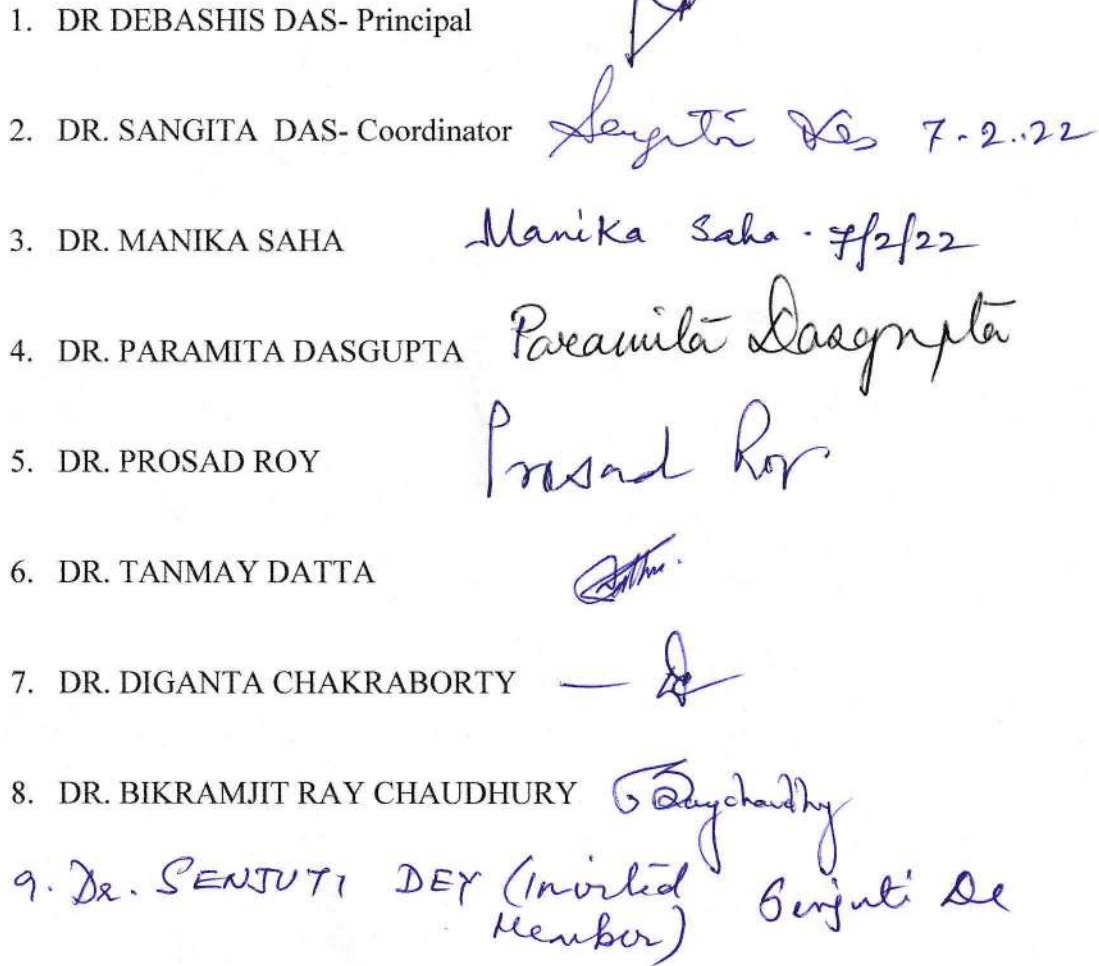 1. DR DEBASHIS DAS- Principal
2. DR. SANGITA DAS- Coordinator Sangita Das 7.2.22
3. DR. MANIKA SAHA Manika Saha. 7/2/22
4. DR. PARAMITA DASGUPTA Paramita Dasgupta
5. DR. PROSAD ROY Prosad Roy
6. DR. TANMAY DATTA
7. DR. DIGANTA CHAKRABORTY
8. DR. BIKRAMJIT RAY CHAUDHURY
9. Dr. SENJUTI DEY (Invited Senjuti De
Member)